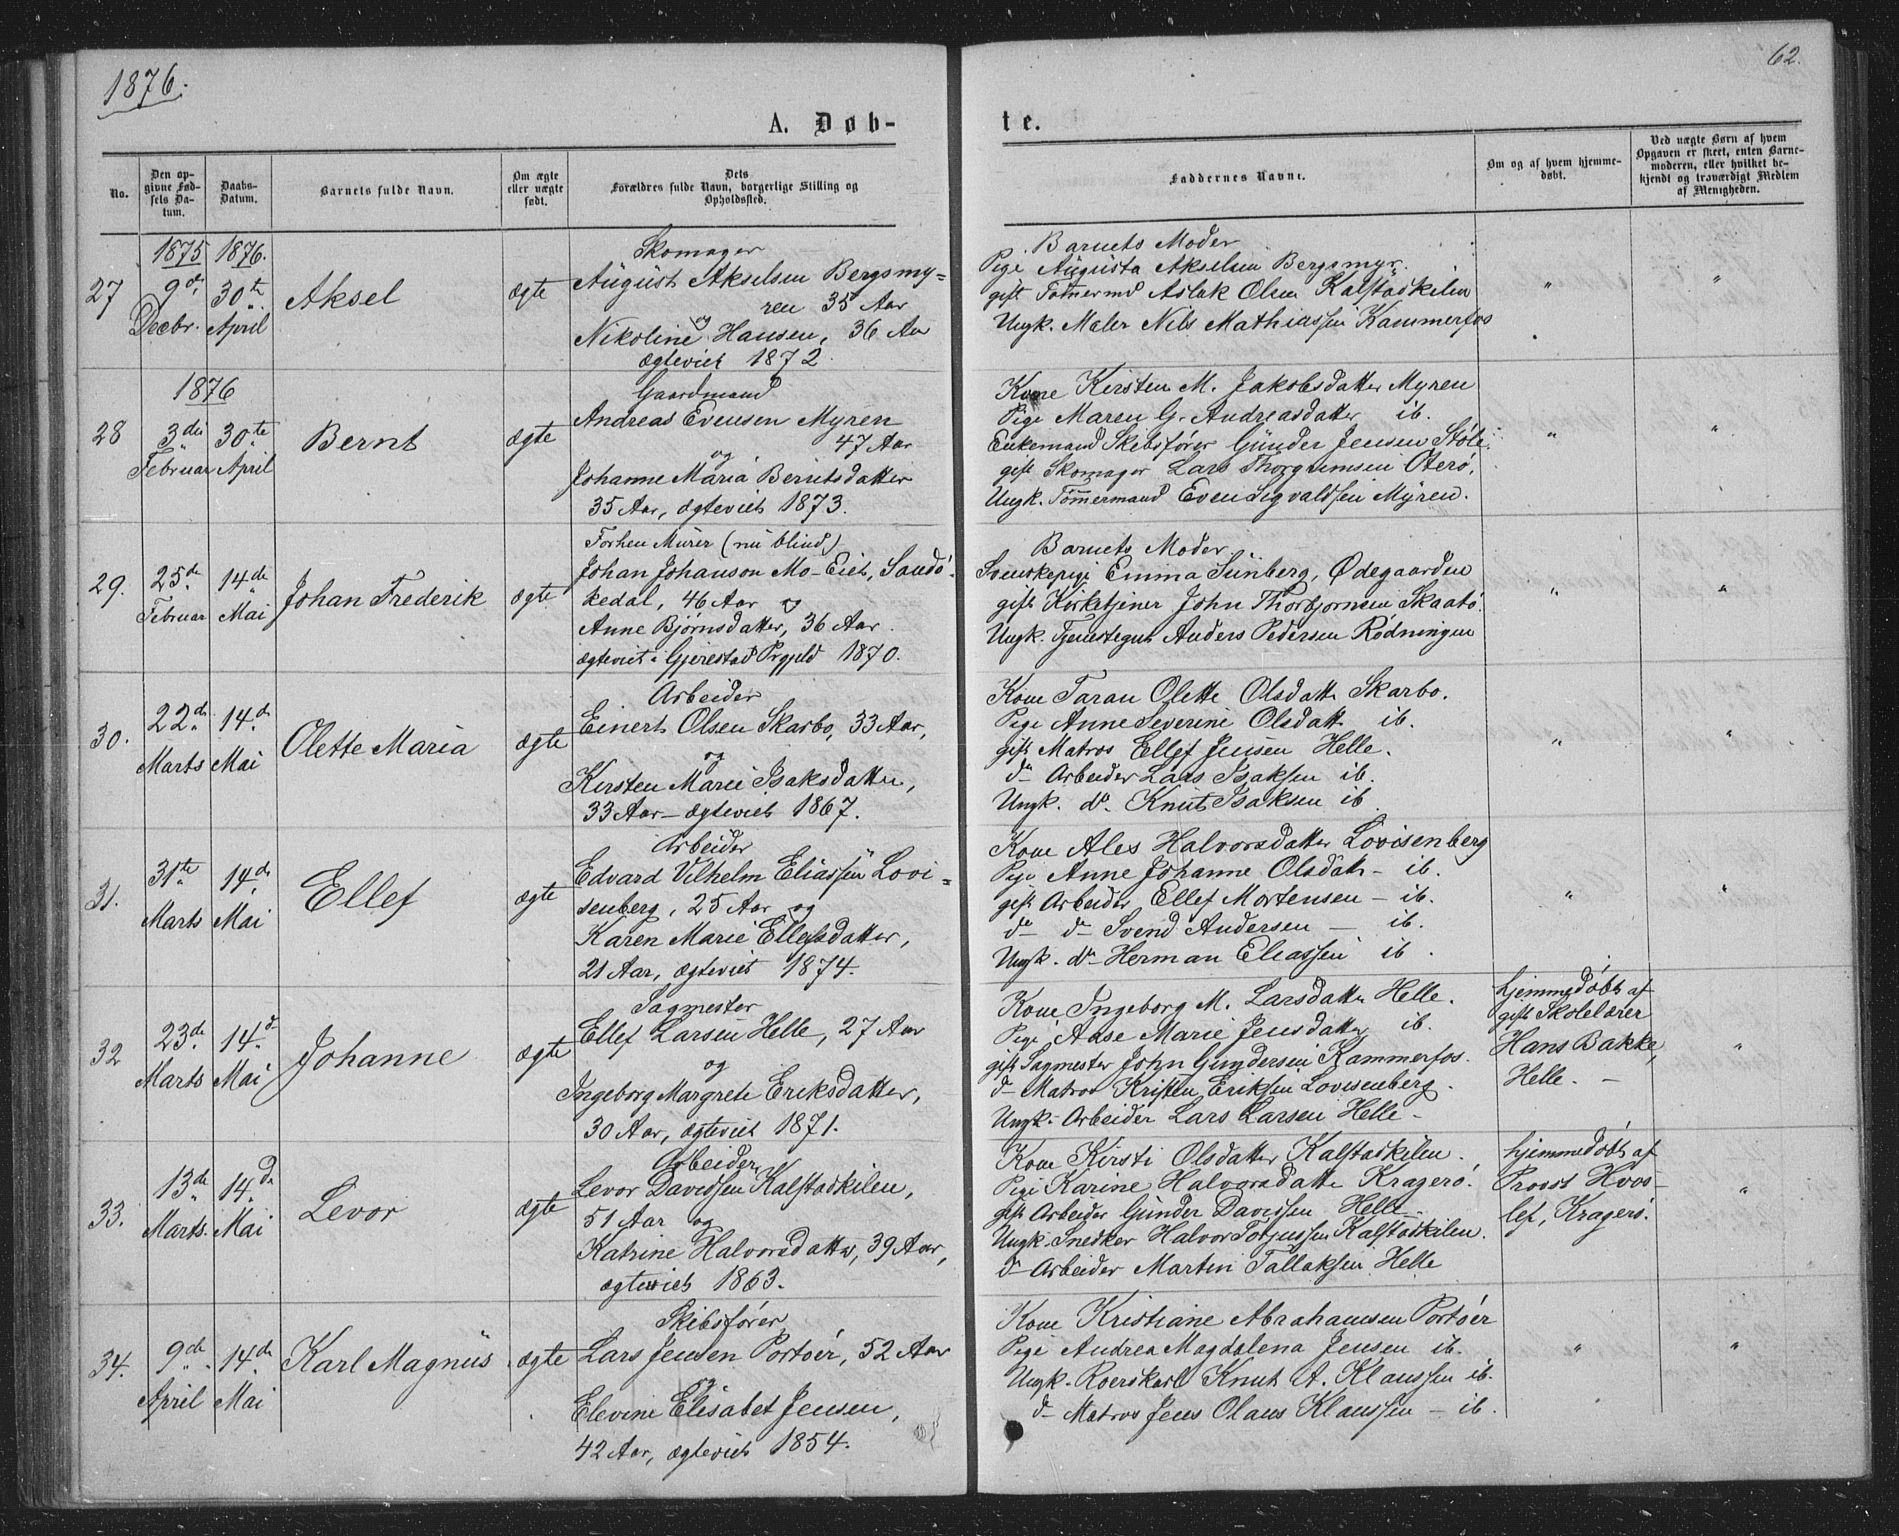 1876.
62.
A. Døb-
te.
No.
Den opgivne Fødsels Datum.
Daabs-Datum.
Barnets fulde Navn.
Om ægte eller uægte født.
Dets Forældres fulde Navn, borgerlige Stilling og Opholdssted.
Faddernes Navne.
Om og af hvem hjemmedøbt.
Ved uægte Børn af hvem Opgaven er skeet, enten Barnemoderen, eller hvilket bekjendt og troværdigt Medlem af Menigheden.
27
1875
9de
Decbr.
1876.
30te
April
Aksel
ægte
Skomager
August Akselsen Bergsmy=
ren 35 Aar
og
Nikoline Hansen, 36 Aar
ægteviet 1872.
Barnets Moder
Pige Augusta Akselsen Bergsmyr.
gift Tømermd Aslak Olsen Kalstadkilen
Ungk. Maler Nils Mathiassen Kammerfos
"
"
28
1876
3die
Februar
30te
April
Bernt
ægte
Gaardmand
Andreas Evensen Myren
47 Aar
og
Johanne Maria Berntsdatter
35 Aar, ægteviet 1873.
Kone Kirsten M. Jakobsdatter Myren
Pige Maren G. Andreasdatter ib.
Enkemand Skibsfører Gunder Jensen Støle
gift Skomager Lars Thorgrimsen Oterø,
Ungk. Tømmermand Even Sigvaldsen Myren.
"
"
29.
25de
Februar
14de
Mai
Johan Frederik
ægte
Forhen Murer (nu blind)
Johan Johanson Mo-Eiet, Sandø-
kedal, 46 Aar og
Anne Bjørnsdatter, 36 Aar.
ægteviet i Gjerestad Prgjeld 1870.
Barnets Moder
Svenskepige Emma Sunberg, Ødegaarden
gift Kirketjener John Thorbjørnsen Skaatø.
Ungk. Tjenestegut Anders Pedersen Rødningen
"
"
30.
22de
Marts
14de
Mai
Olette Maria
ægte
Arbeider
Einert Olsen Skarbo, 33 Aar,
og
Kirsten Marie Isaksdatter,
33 Aar - ægteviet 1867.
Kone Taran Olette Olsdatt Skarbo.
Pige Anne Severine Olsdatt ib.
gift Matros Ellef Jensen Helle.
do Arbeider Lars Isaksen ib.
Ungk. do. Knut Isaksen ib.
"
"
31.
31te
Marts
14de
Mai
Ellef
ægte
Arbeider
Edvard Vilhelm Eliassen Lovi=
senberg, 25 Aar og
Karen Marie Ellefsdatter,
21 Aar, ægteviet 1874.
Kone Ales Halvorsdatter Lovisenberg
Pige Anne Johanne Olsdatt - ib.
gift Arbeider Ellef Mortensen - ib.
do do Svend Andersen - ib.
Ungk. do - Herman Eliassen ib.
"
"
32
23de
Marts
14de
Mai
Johanne
ægte
Sagmester
Ellef Larsen Helle, 27 Aar
og
Ingeborg Margrete Eriksdatter,
30 Aar, ægteviet 1871.
Kone Ingeborg M. Larsdatter Helle.
Pige Aase Marie Jensdatter ib.
gift Sagmester John Gundersen Kammerfos.
do - Matros Kristen Eriksen Lovisenberg.
Ungk - Arbeider Lars Larsen Helle -
hjemmedøbt af
gift Skolelærer
Hans Bakke,
Helle. -
"
33.
13de
Marts.
14de
Mai
Levor
ægte
Arbeider
Levor Davidsen Kalstadkilen,
51 Aar og
Katrine Halvorsdatter, 39 Aar,
ægteviet 1863.
Kone Kirsti Olsdatter Kalstadkilen.
Pige Karine Halvorsdatter Kragerø.
gift Arbeider Gunder Davidsen Helle.
Ungk. Snedker Halvor Torjussen Kalstadkilen.
do - Arbeider Martin Tallaksen Helle
hjemmedøbt af
Provst Hvos-
lef, Kragerø.
"
34.
9de
April
14de
Mai
Karl Magnus
ægte
Skibsfører
Lars Jensen Portøer, 52 Aar
og
Elevine Elisabet Jensen,
42 Aar, ægteviet 1854.
Kone Kristiane Abrahamsen Portøer
Pige Andrea Magdalena Jensen ib.
Ungk. Roerskarl Knut A. Klaussen ib.
do - Matros Jens Olaus Klaussen - ib.
"
"